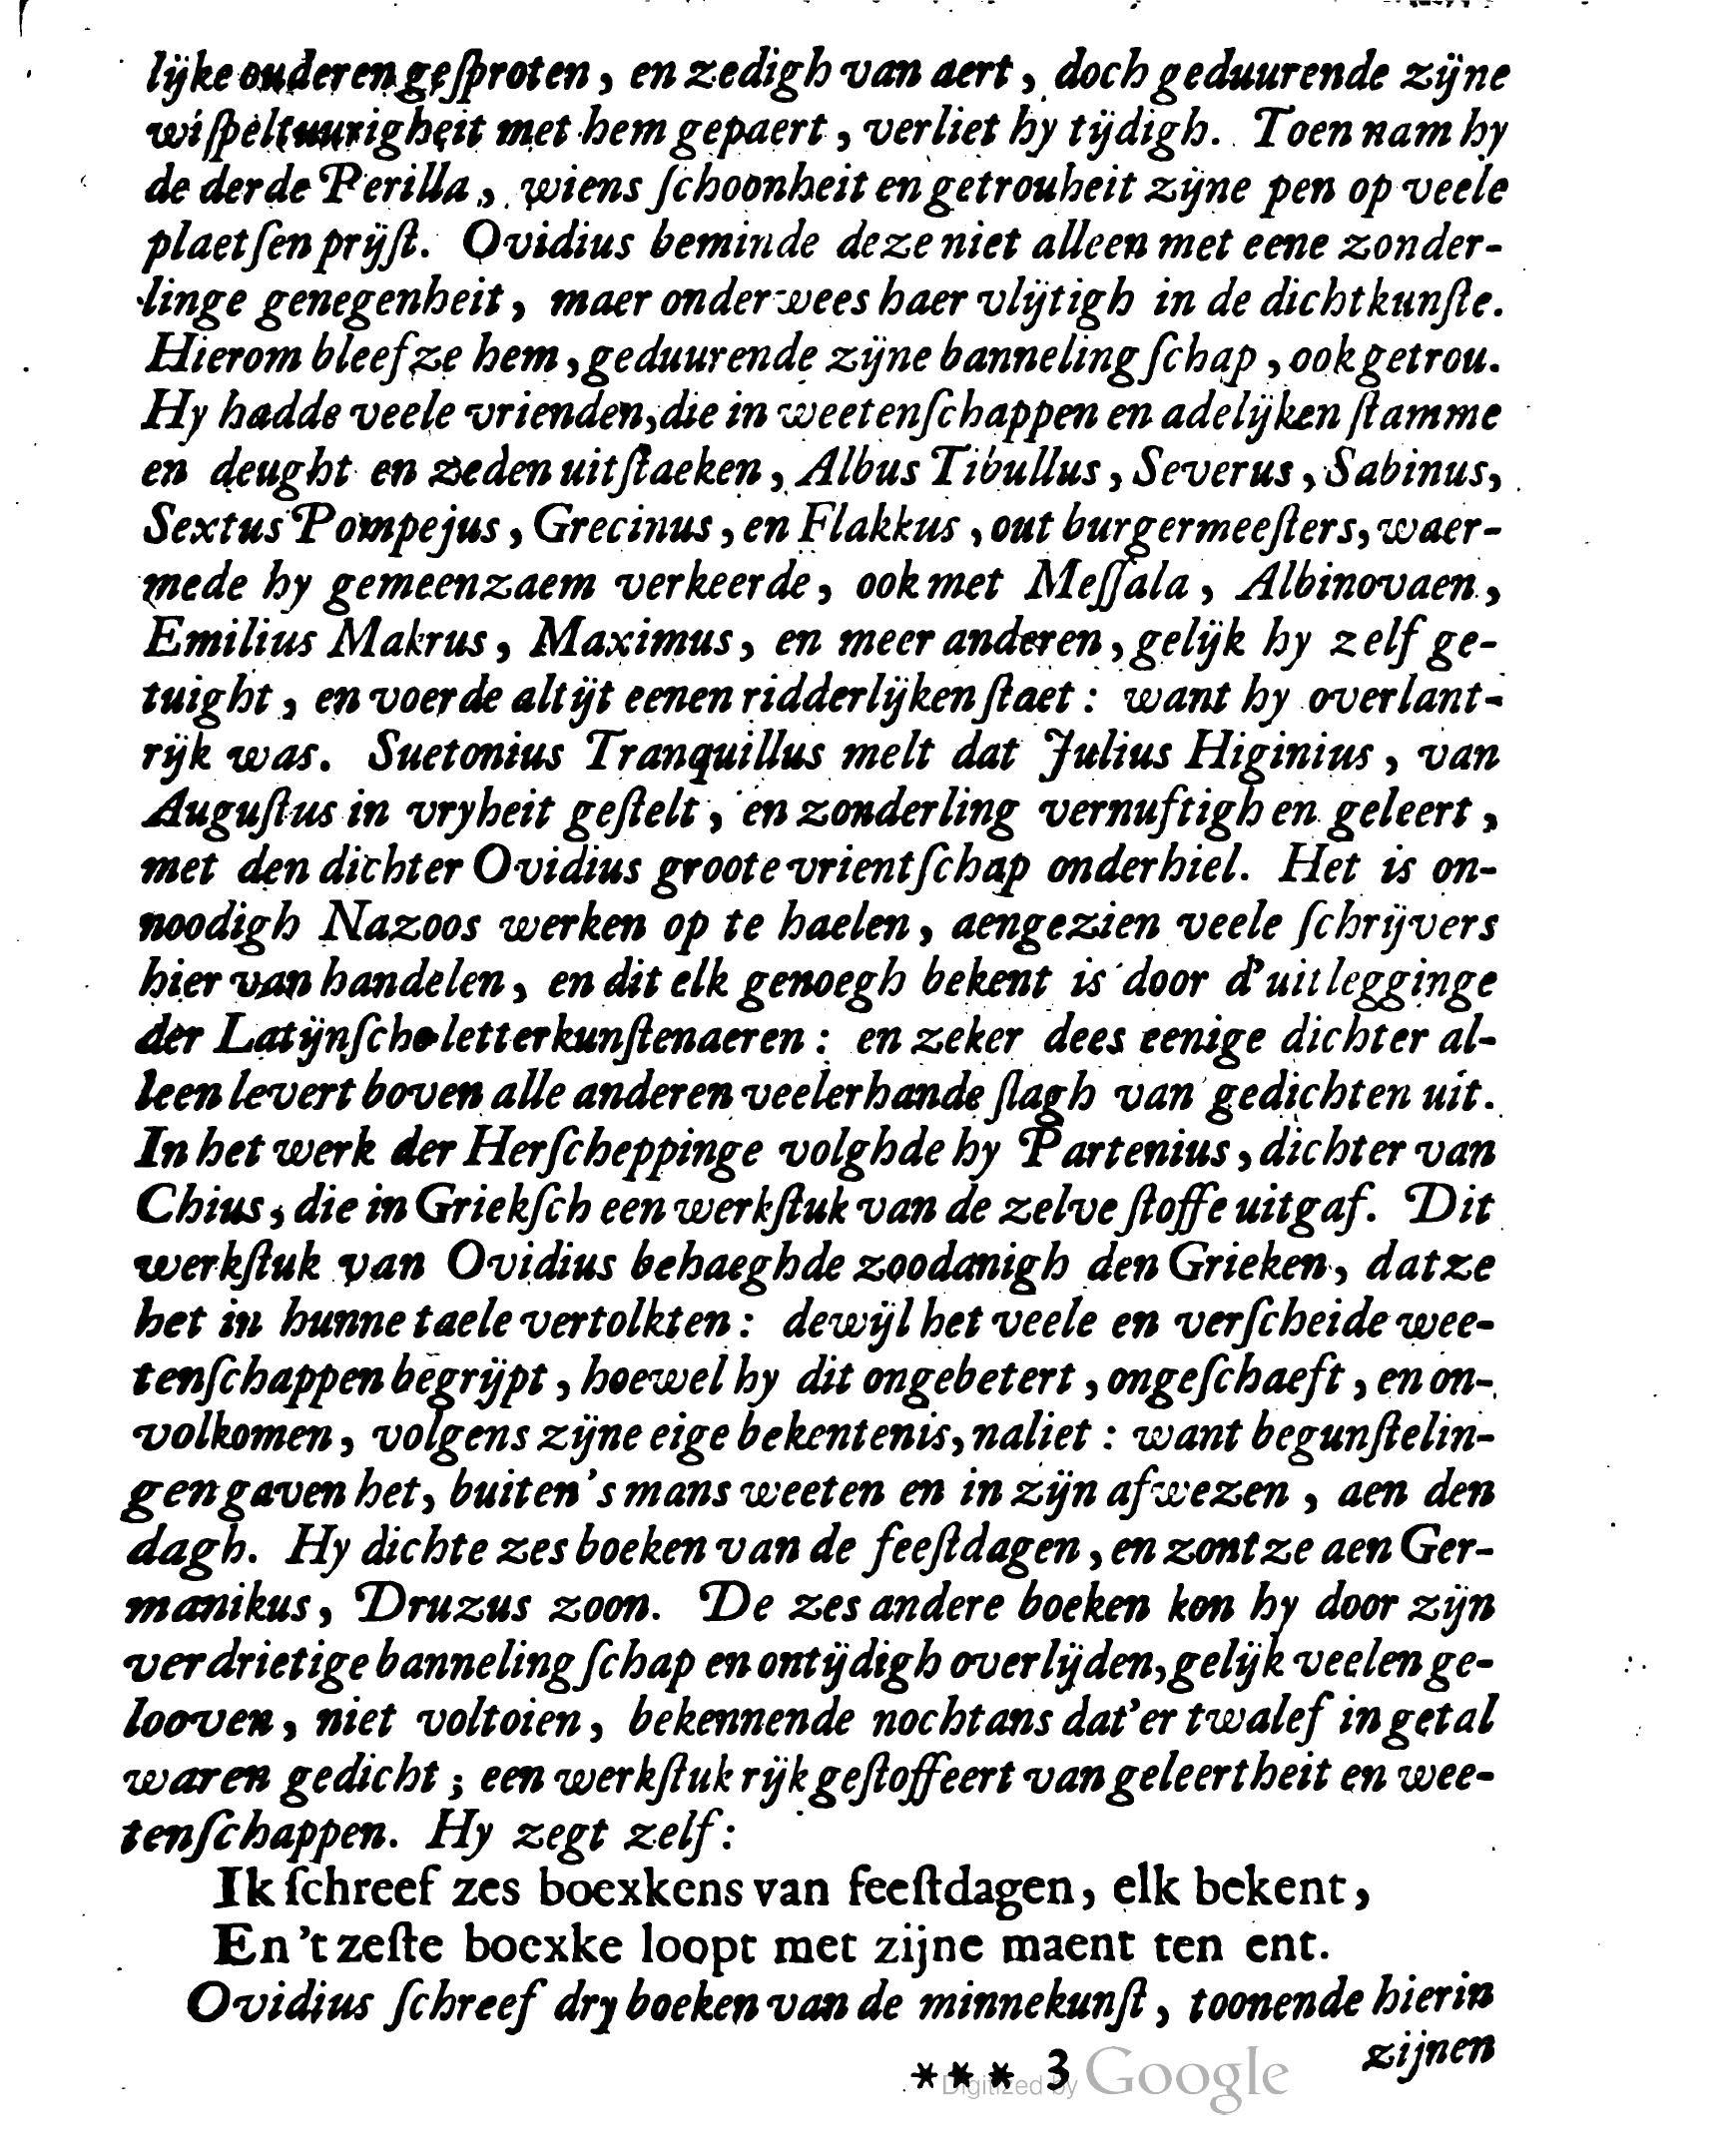 lijke ouderen geſproten, en zedigh van aert, doch geduurende zijne
wiſpeltuurigheit met hem gepaert, verliet hy tijdigh. Toen nam hy
de derde Perilla, wiens ſchoonheit en getrouheit zijne pen op veele
plaetſen prijſt. Ovidius beminde deze niet alleen met eene zonder-
linge genegenheit, maer onderwees haer vlijtigh in de dichtkunſte.
Hierom bleef ze hem, geduurende zijne banneling ſchap, ook getrou.
Hy hadde veele vrienden, die in weetenſchappen en adelijken ſtamme
en deught en zeden uitſtaeken, Albus Tibullus, Severus, Sabinus,
Sextus Pompejus, Grecinus, en Flakkus, out burgermeeſters, waer-
mede hy gemeenzaem verkeerde, ook met Meſſala, Albinovaen,
Emilius Makrus, Maximus, en meer anderen, gelijk hy zelf ge-
tuight, en voerde altijt eenen ridderlijken ſtaet: want hy overlant-
rijk was. Suetonius Tranquillus melt dat Julius Higinius, van
Auguſtus in vryheit geſtelt, en zonderling vernuftigh en geleert,
met den dichter Ovidius groote vrientſchap onderhiel. Het is on-
noodigh Nazoos werken op te haelen, aengezien veele ſchrijvers
hier van handelen, en dit elk genoegh bekent is door d'uitlegginge
der Latijnſche letterkunſtenaeren: en zeker dees eenige dichter al-
leen levert boven alle anderen veelerhande ſlagh van gedichten uit.
In het werk der Herſcheppinge volghde hy Partenius, dichter van
Chius, die in Griekſch een werkſtuk van de zelve ſtoffe uitgaf. Dit
werkſtuk van Ovidius behaeghde zoodanigh den Grieken, dat ze
het in hunne taele vertolkten: dewijl het veele en verſcheide wee-
tenſchappen begrijpt, hoewel hy dit ongebetert, ongeſchaeft, en on-
volkomen, volgens zijne eige bekentenis, naliet: want begunſtelin-
gen gaven het, buiten 's mans weeten en in zijn afwezen, aen den
dagh. Hy dichte zes boeken van de feeſtdagen, en zont ze aen Ger-
manikus, Druzus zoon. De zes andere boeken kon hy door zijn
verdrietige banneling ſchap en ontijdigh overlijden, gelijk veelen ge-
looven, niet voltoien, bekennende nochtans dat'er twalef in getal
waren gedicht; een werkſtuk rijk geſtoffeert van geleertheit en wee-
tenſchappen. Hy zegt zelf:
Ik ſchreef zes boexkens van feeſtdagen, elk bekent,
En 't zeſte boexke loopt met zijne maent ten ent.
Ovidius ſchreef dry boeken van de minnekunſt, toonende hierin
zijnen
*** 3
Digitized by Google